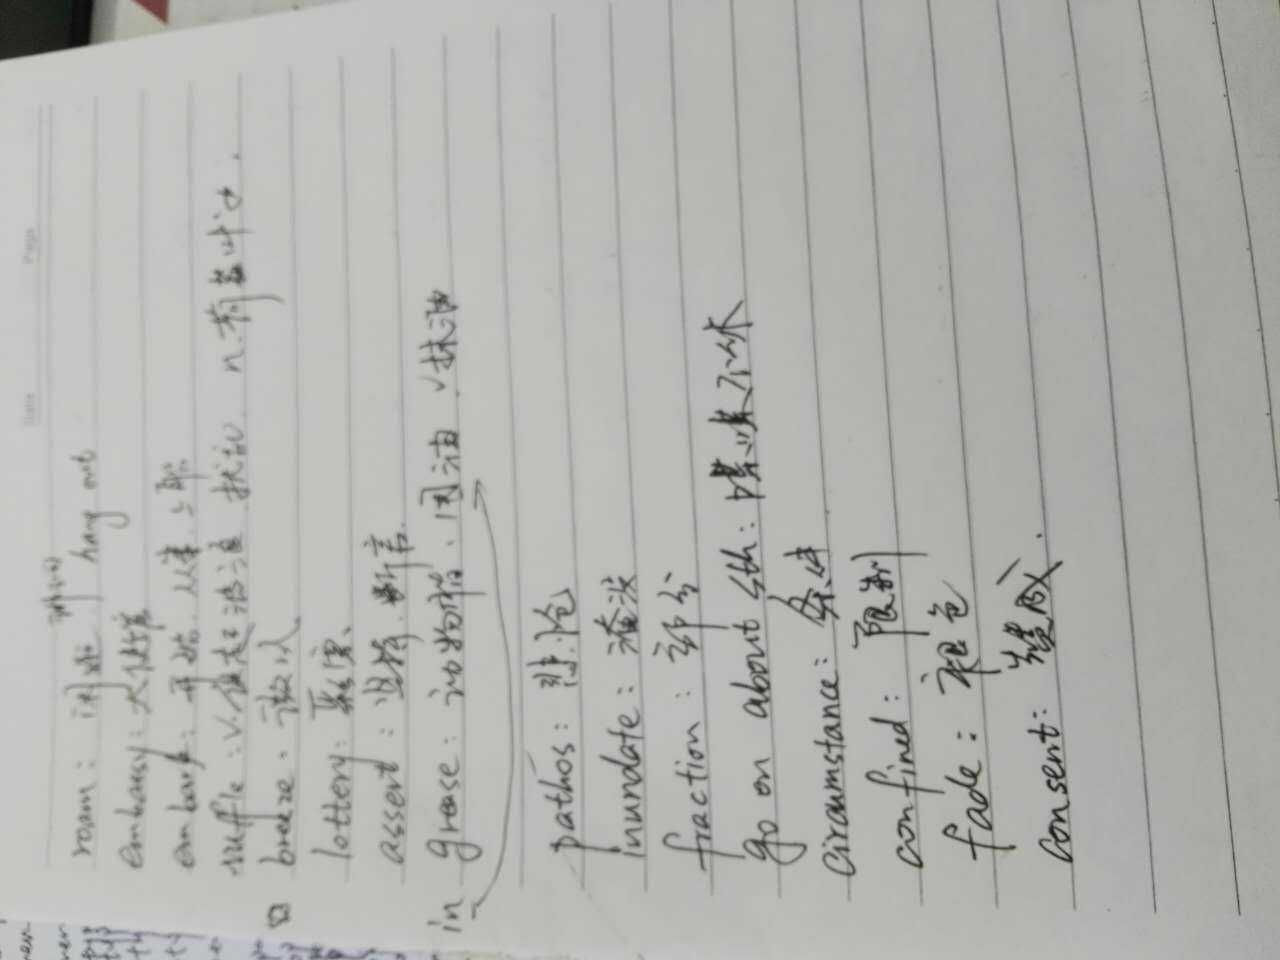 Date Page
roam: 闲逛 hang out
embassy: 大使馆
embark: 开始. 从事. 上船
ruffle: v. 使走 波浪 扰乱 n.
breeze: 微风
lottery: 彩票
assert: 坚持. 断言.
in grease: 动物脂、润油 v 抹油
pathos: 悲怆
inundate: 淹没
fraction: 部分
go on about sth: 喋喋不休
circumstance: 条件
confined: 限制
fade: 褪色
consent: 赞成.